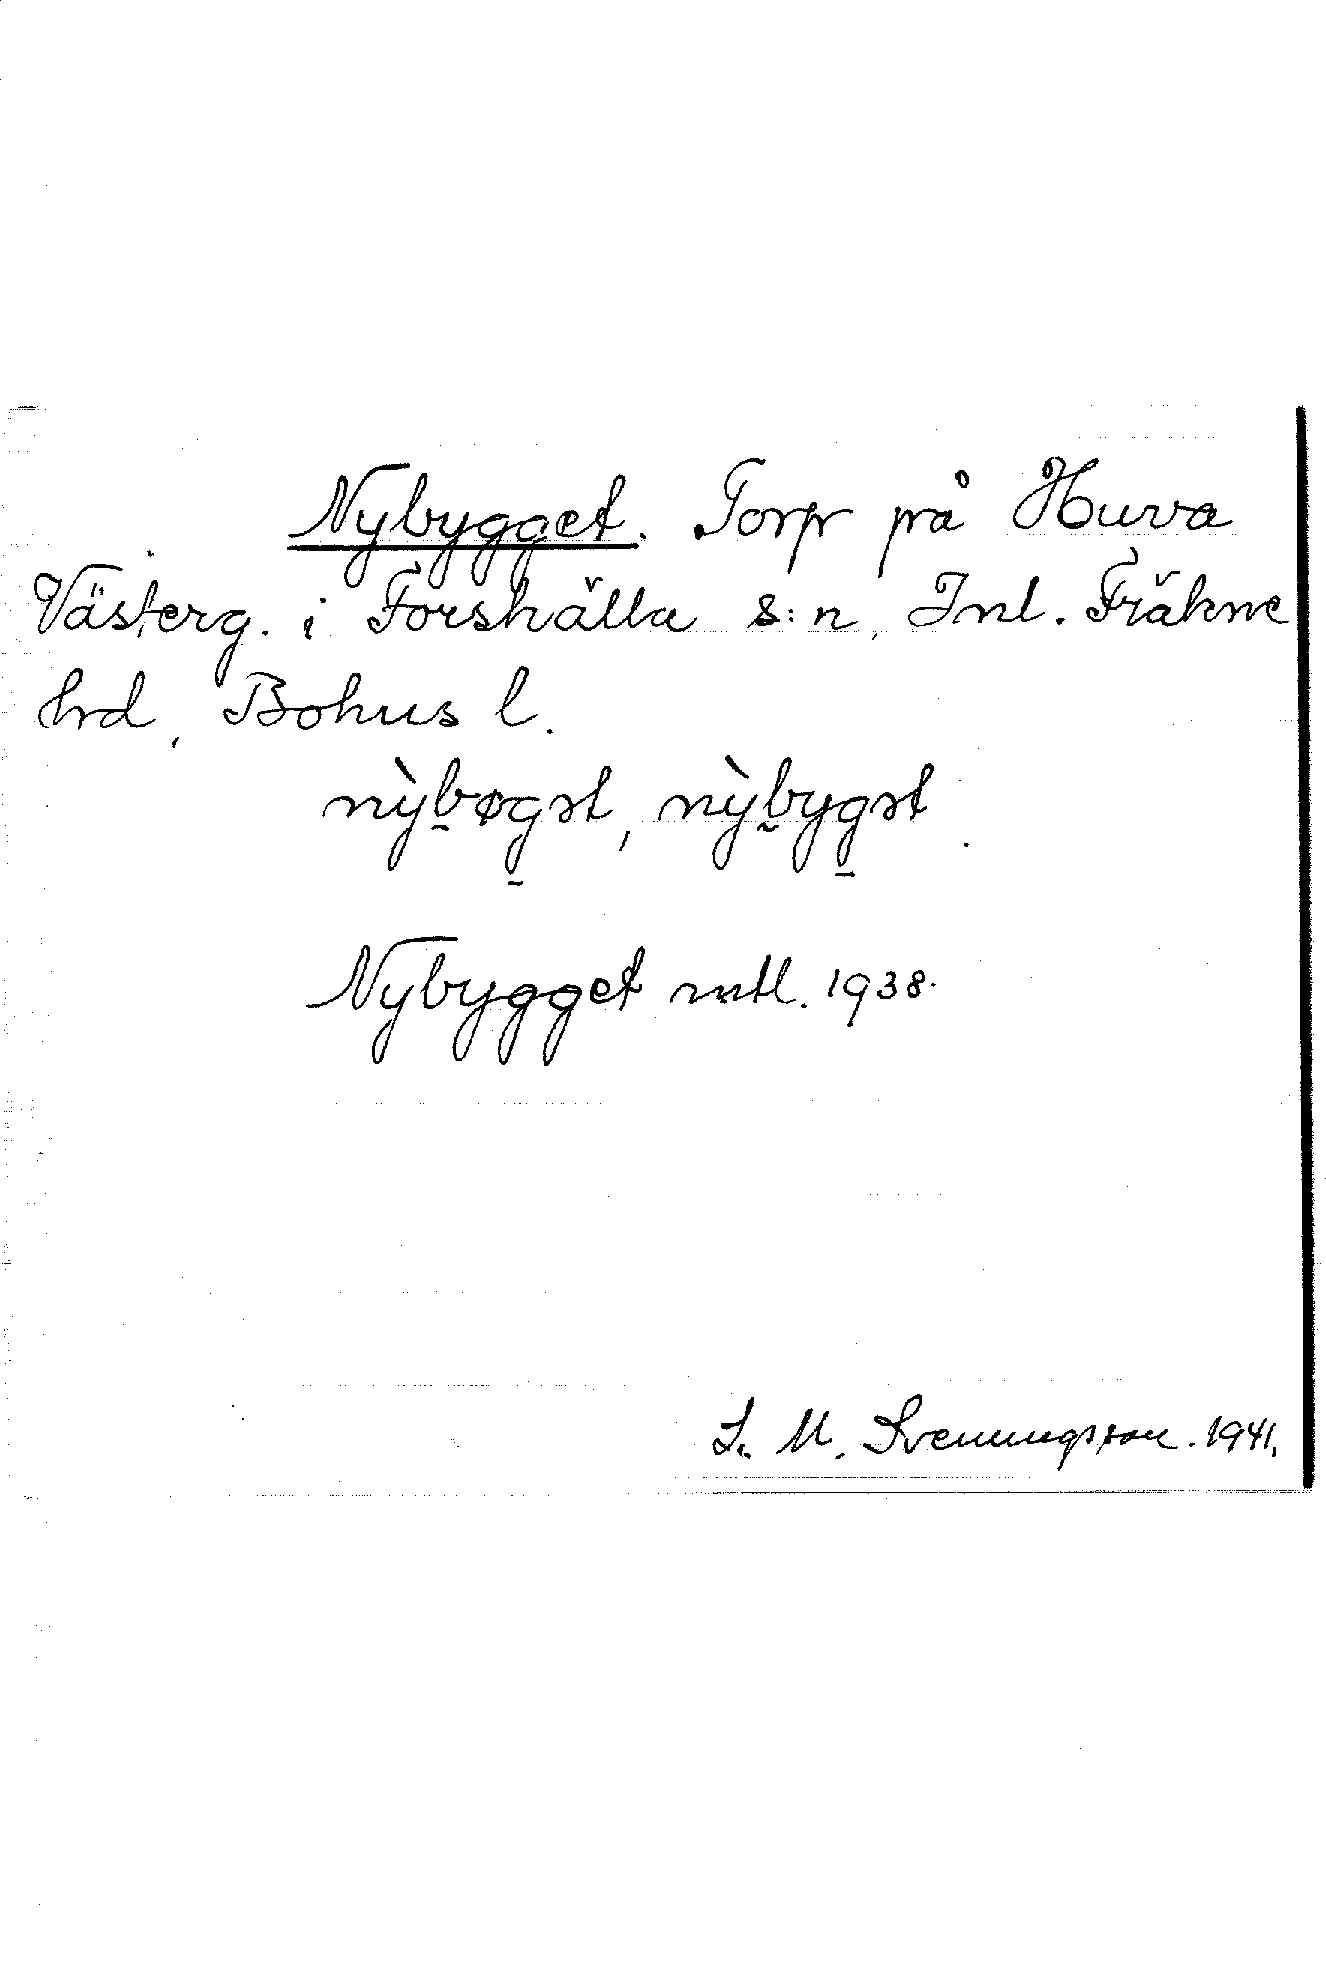 Nybygget. Torp på Huva
Västerg. i Forshälla s:n, Inl. Fräkne
hrd, Bohus l.
nỳb̠øg̠ət, nỳb̠yg̠ət.
Nybygget mtl. 1938.
S. M. Svenungsson. 1941.